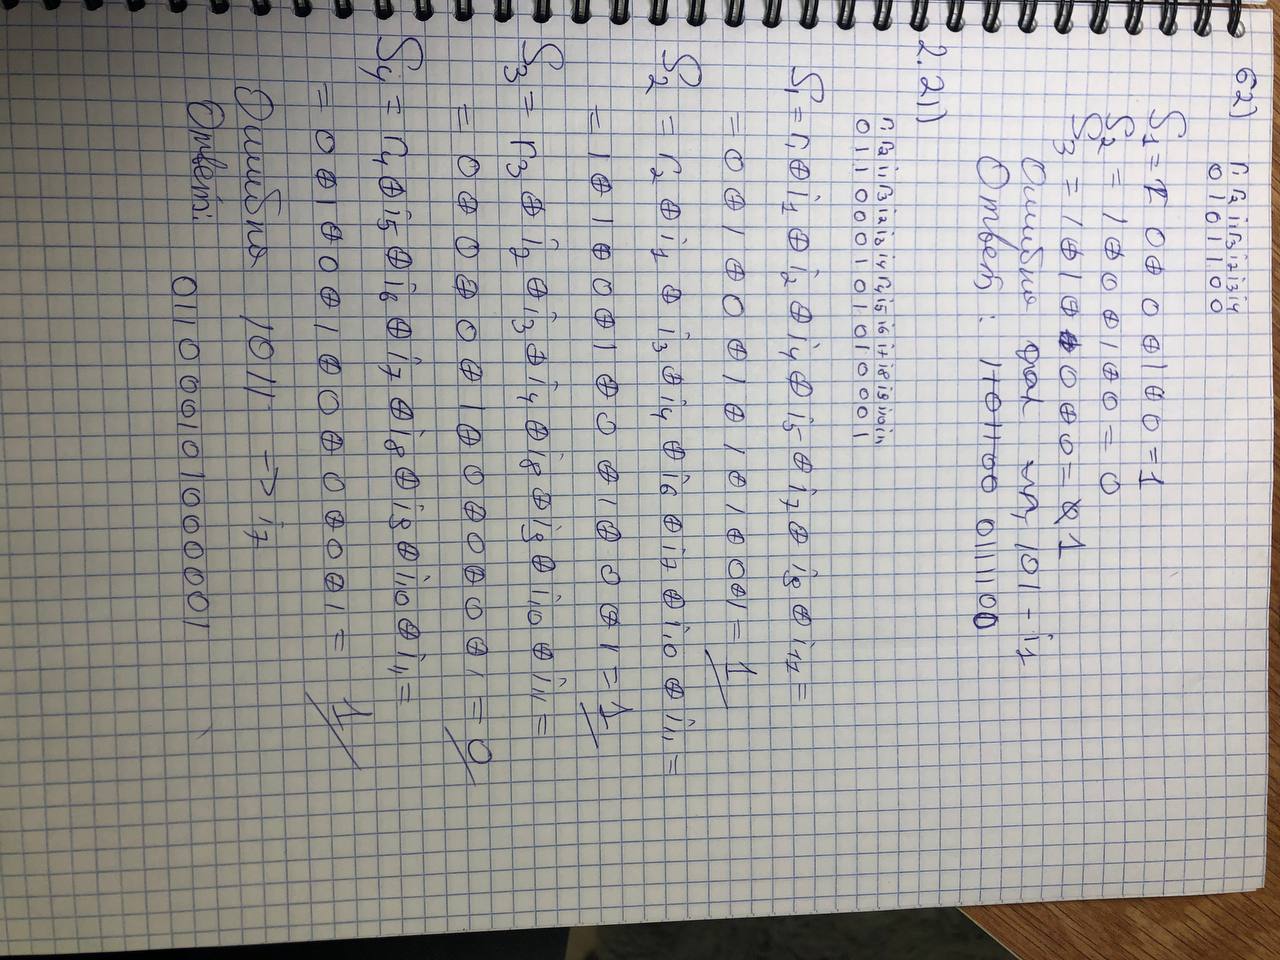 62)
r₁ r₂ i₁ r₃ i₂ i₃ i₄
0 1 0 1 1 0 0
S₁ = 0 ⊕ 0 ⊕ 1 ⊕ 0 = 1
S₂ = 1 ⊕ 0 ⊕ 1 ⊕ 0 = 0
S₃ = 1 ⊕ 1 ⊕ 0 ⊕ 0 = 1
Ошибка 101 - i₂
Ответ: 0111100
2.211)
r₁ r₂ i₁ r₃ i₂ i₃ i₄ r₄ i₅ i₆ i₇ i₈ i₉ i₁₀ i₁₁
0 1 1 0 0 0 1 0 1 0 1 0 0 0 1
S₁ = r₁ ⊕ i₁ ⊕ i₂ ⊕ i₄ ⊕ i₅ ⊕ i₇ ⊕ i₉ ⊕ i₁₁ =
= 0 ⊕ 1 ⊕ 0 ⊕ 1 ⊕ 1 ⊕ 1 ⊕ 0 ⊕ 1 = 1
S₂ = r₂ ⊕ i₁ ⊕ i₃ ⊕ i₄ ⊕ i₆ ⊕ i₇ ⊕ i₁₀ ⊕ i₁₁ =
= 1 ⊕ 1 ⊕ 0 ⊕ 1 ⊕ 0 ⊕ 1 ⊕ 0 ⊕ 1 = 1
S₃ = r₃ ⊕ i₂ ⊕ i₃ ⊕ i₄ ⊕ i₈ ⊕ i₉ ⊕ i₁₀ ⊕ i₁₁ =
= 0 ⊕ 0 ⊕ 0 ⊕ 1 ⊕ 0 ⊕ 0 ⊕ 0 ⊕ 1 = 0
S₄ = r₄ ⊕ i₅ ⊕ i₆ ⊕ i₇ ⊕ i₈ ⊕ i₉ ⊕ i₁₀ ⊕ i₁₁ =
= 0 ⊕ 1 ⊕ 0 ⊕ 1 ⊕ 0 ⊕ 0 ⊕ 0 ⊕ 1 = 1
Ошибка 1011 => i₇
Ответ: 011000101000001